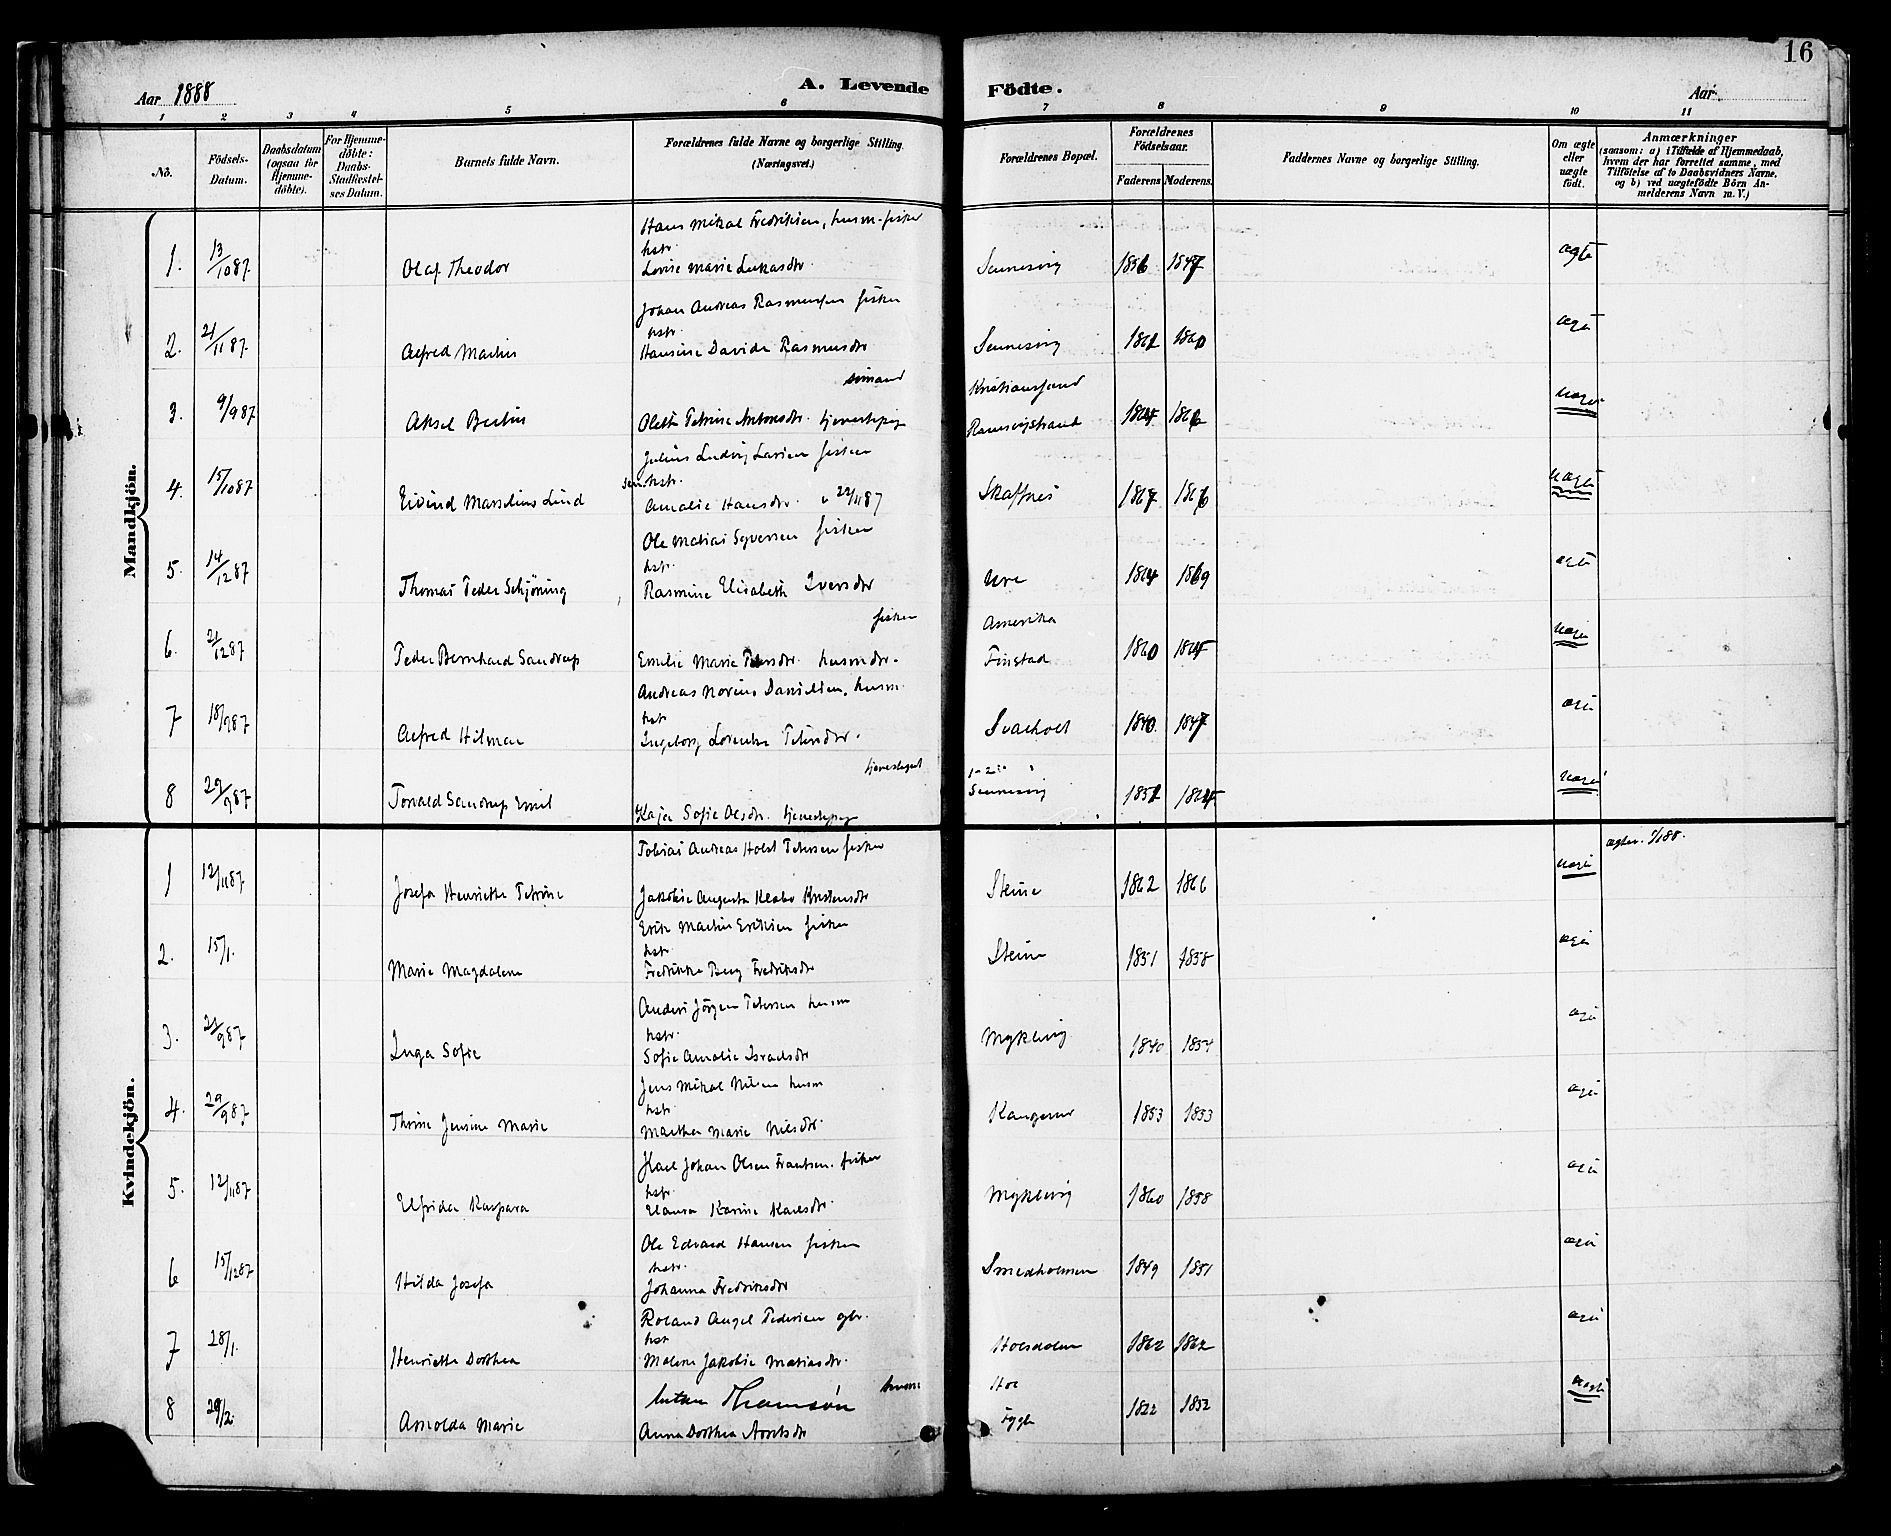 16
Aar 1888
A. Levende Födte.
Aar
1 2 3 4 5 6 7 8 9 10 11
No.
Födsels-Datum.
Daabsdatum (ogsaa for Hjemme-döbte).
For Hjemme-döbte: Daabs-Stadfæstel-ses Datum.
Barnets fulde Navn.
Forældrenes fulde Navne og borgerlige Stilling. (Næringsvei.)
Forældrenes Bopæl.
Forældrenes Födselsaar.
Faderens Moderens.
Faddernes Navne og borgerlige Stilling.
Om ægte eller uægte födt.
Anmærkninger
(saasom: a) i Tilfælde af Hjemmedaab, hvem der har forrettet samme, med Tilföielse af to Daabsvidners Navne, og b) ved uægtefödte Börn An-melderens Navn m. V.)
Mandkjön.
Hans Mikal Fredriksen, husm. fisker
hstr.
1. 13/10 87 Olaf Theodor Lovise Marie Lukasdtr. Sennesvig 1847 ægte
Johan Andreas Rasmussen fisker
hstr.
2. 21/11 87 Alfred Martin Hansine Davida Rasmusdtr Sennesvig 1860 ægte
sömand Kristiansund
3. 9/9 87 Aksel Bertin Oletta Petrine Antonsdtr. tjenestepige Ramsvigstrand uægte
Julius Ludvig Larsen fisker
hstr.
4. 15/10 87 Eivind Marselius Lind Amalie Hansdtr. v 22/11 87 Skafnes 1867 1866 uægte
Ole Matias Syversen fisker
hstr.
5. 14/12 87 Thomas Peder Schjöning Rasmine Elisabeth Iversdtr Ure 1864 1869 ægte
fisker Amerika
6. 21/12 87 Peder Bernhard Sandrup Emilie Marie husmdtr. Finstad 1860 uægte
Andreas Norius Danielsen, husm.
hstr
7 18/9 87 Alfred Hilmar Ingeborg Lorentse Petersdtr. Svarholt 1840 1847 ægte
tjenestegut
8 29/9 87 Tonald Sandrup Emil Kaja Sofie Olsdtr. tjenestepige Sennesvig uægte
Kvindekjön.
Tobias Andreas Holst Petersen fisker
1 12/11 87 Josefa Henriette Petrine Jakobie Augusta Klæbo Kristensdtr Steine 1862 1866 uægte
Erik Martin Eriksen fisker
hstr
2. 15/1. Marie Magdalene Fredrikke Berg Fredriksdtr Steine 1851 1858 ægte
Anders Jörgen Petersen husm
hstr.
3. 21/9 87 Inga Sofie Sofie Amalie Israelsdtr Myklevig 1840 1854 ægte
Jens Mikal Nilsen husm
hstr.
4. 29/9 87 Thrine Jensine Marie Marthea Marie Nilsdtr. Kangerur 1853 1853 ægte
Karl Johan Olsen Frantsen. fisker
hstr.
5. 12/11 87 Elfrida Kaspara Elanra Karine Karlsdtr. Myklevig 1860 1858 ægte
Ole Edvard Hansen fisker
hstr.
6 15/12 87 Hilda Josefa Johanna Fredriksdtr Smedholmen 1849 1851 ægte
Roland Angel Pedersen gbr.
hstr
7 28/1. Henriette Dorthea Malene Jakobie Matiasdtr. Holsdalen 1862 1862 ægte
husm Hol
8 29/2. Arnolda Marie Anna Dorthea Arntsdtr Fygle 1822 1852 uægte